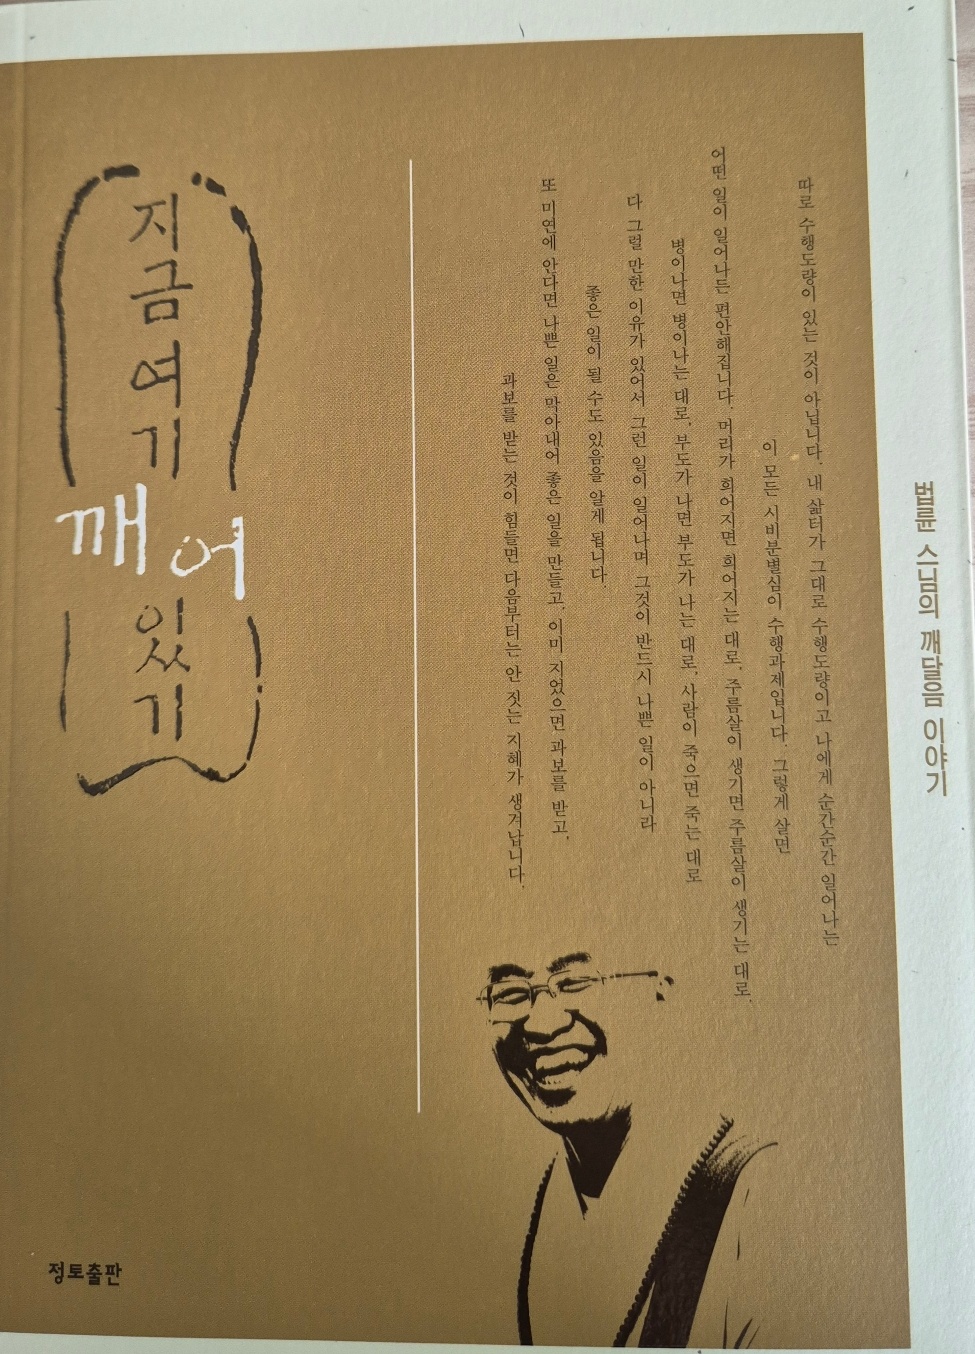 법륜 스님의 깨달음 이야기
따로 수행도량이 있는 것이 아닙니다. 내 삶터가 그대로 수행도량이고 나에게 순간순간 일어나는
이 모든 시비분별심이 수행과제입니다. 그렇게 살면
어떤 일이 일어나든 편안해집니다. 머리가 희어지면 희어지는 대로, 주름살이 생기면 주름살이 생기는 대로,
병이나면 병이나는 대로, 부도가 나면 부도가 나는 대로, 사람이 죽으면 죽는 대로
다 그럴 만한 이유가 있어서 그런 일이 일어나며 그것이 반드시 나쁜 일이 아니라
좋은 일이 될 수도 있음을 알게 됩니다.
또 미연에 안다면 나쁜 일은 막아내어 좋은 일을 만들고, 이미 지었으면 과보를 받고,
과보를 받는 것이 힘들면 다음부터는 안 짓는 지혜가 생겨납니다.
지금 여기
깨어
있기
정토출판